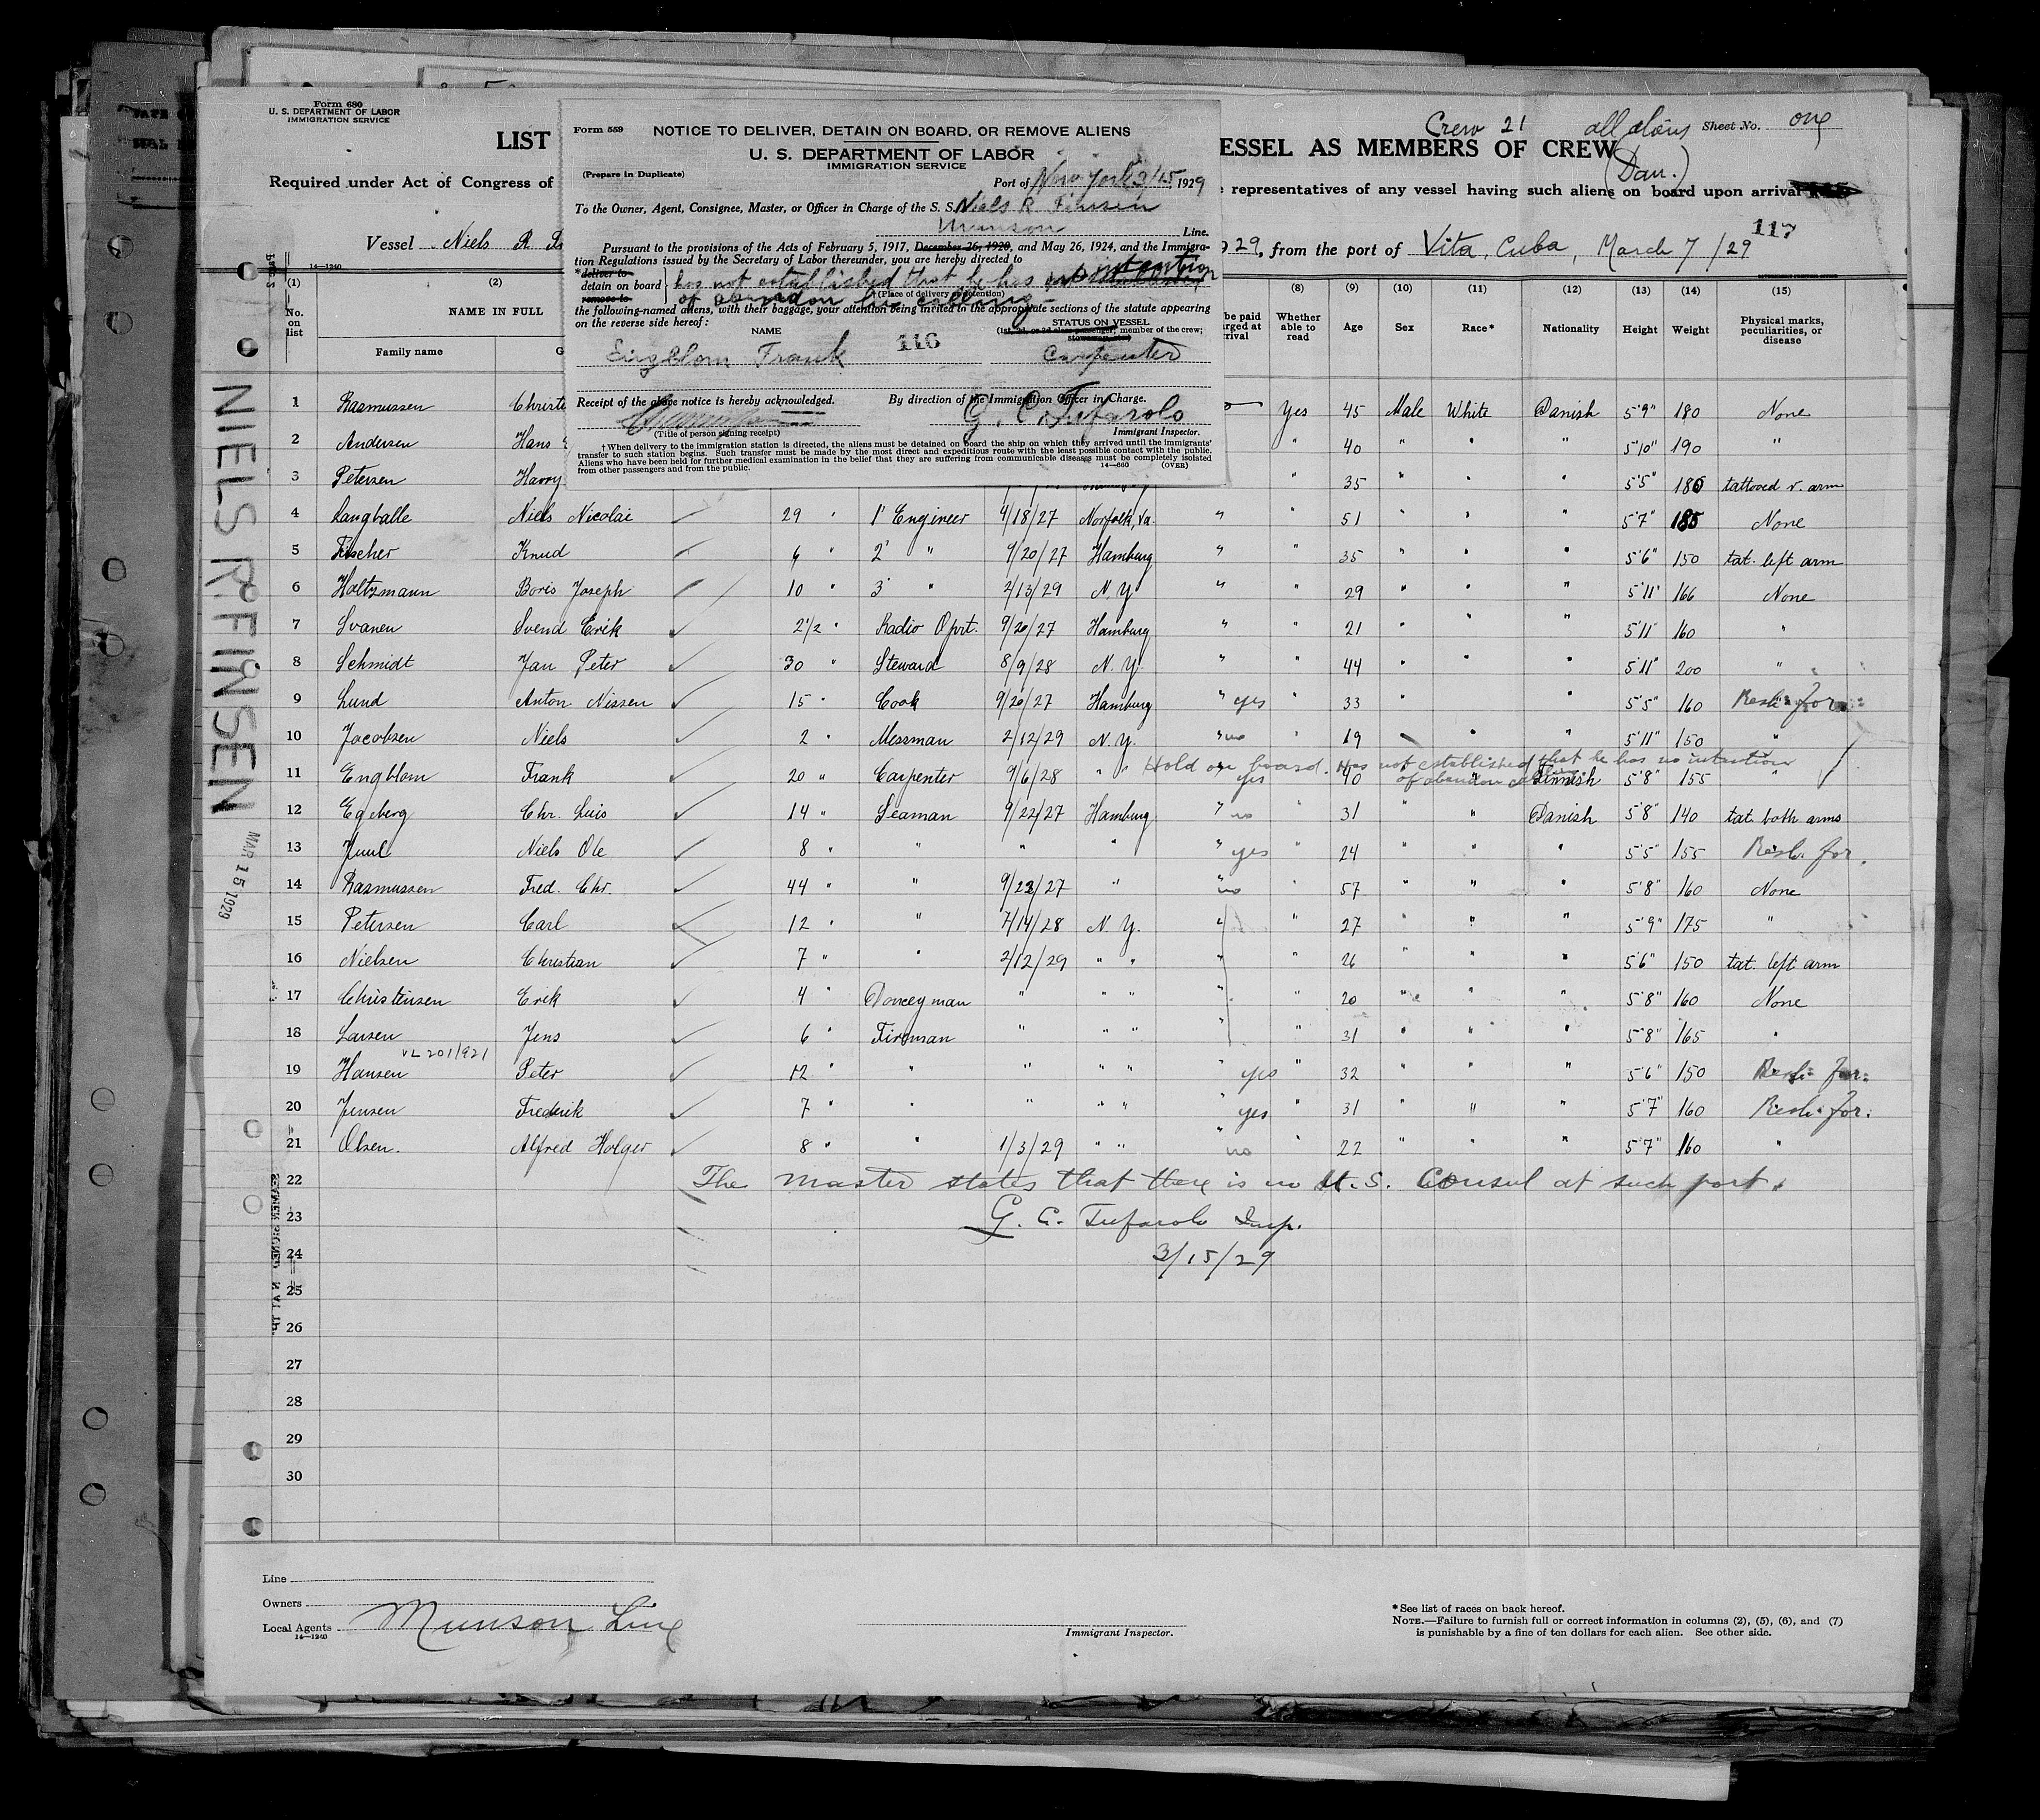 Form 680
U. S. DEPARTMENT OF LABOR
IMMIGRATION SERVICE
LIST
Required under Act of Congress of
Vessel Niels R
Form 559
NOTICE TO DELIVER, DETAIN ON BOARD, OR REMOVE ALIENS
U. S. DEPARTMENT OF LABOR
IMMIGRATION SERVICE
(Prepare in Duplicate)
Port of New York 3/15, 1929
To the Owner, Agent, Consignee, Master, or Officer in Charge of the S. S. Niels R Finsen
Munson Line.
Pursuant to the provisions of the Acts of February 5, 1917, December 26, 1920, and May 26, 1924, and the Immigra-
tion Regulations issued by the Secretary of Labor thereunder, you are hereby directed to
*deliver to
detain on board
remove to
has not established that he has intention
of abandon his calling
(Place of delivery or detention)
the following-named aliens, with their baggage, your attention being invited to the appropriate sections of the statute appearing
on the reverse side hereof:
NAME
STATUS ON VESSEL
(1st, 2d, or 3d class passenger, member of the crew;
stowaway, etc.)
Engblom Frank 116 Carpenter
Receipt of the above notice is hereby acknowledged. By direction of the Immigration Officer in Charge.
G. C. Tufarolo
(Title of person signing receipt) Immigrant Inspector.
†When delivery to the immigration station is directed, the aliens must be detained on board the ship on which they arrived until the immigrants'
transfer to such station begins. Such transfer must be made by the most direct and expeditious route with the least possible contact with the public.
Aliens who have been held for further medical examination in the belief that they are suffering from communicable diseases must be completely isolated
from other passengers and from the public. 14—660 (OVER)
Crew 21 all aliens Sheet No. one
ESSEL AS MEMBERS OF CREW
(Dan.)
representatives of any vessel having such aliens on board upon arrival
117
29, from the port of Vita, Cuba, March 7/29
14—1240
(1) (2) (8) (9) (10) (11) (12) (13) (14) (15)
No. on list NAME IN FULL Whether able to read Age Sex Race* Nationality Height Weight Physical marks, peculiarities, or disease
Family name
1 Rasmussen Yes 45 Male White Danish 5'9" 180 None
2 Andersen Hans " 40 " " " 5'10" 190 "
3 Petersen Harry " 35 " " " 5'5" 180 tattooed r. arm
4 Langballe Niels Nicolai 29 " 1' Engineer 4/18/27 Norfolk, Va. " " 51 " " " 5'7" 185 None
5 Fischer Knud 6 " 2' " 9/20/27 Hamburg " " 35 " " " 5'6" 150 tat. left arm
6 Holtzmann Boris Joseph 10 " 3' " 2/13/29 N. Y " " 29 " " " 5'11" 166 None
7 Svanen Svend Erik 2½ " Radio Oprt. 9/20/27 Hamburg " " 21 " " " 5'11" 160 "
8 Schmidt Jan Peter 30 " Steward 8/9/28 N. Y. " " 44 " " " 5'11" 200 "
9 Lund Anton Nissen 15 " Cook 9/20/27 Hamburg " yes " 33 " " 5'5" 160
10 Jacobsen Niels 2 " Messman 2/12/29 N. Y. " no " 19 " " 5'11" 150 "
Hold on board. Has not established that he has no intention
of abandon calling
11 Engblom Frank 20 " Carpenter 9/6/28 " " yes 40 " Finnish 5'8" 155 "
12 Egeberg Chr. Luis 14 " Seaman 9/22/27 Hamburg " no " 31 " " Danish 5'8" 140 tat. both arms
13 Juul Niels Ole 8 " " " " " yes " 24 " " " 5'5" 155
14 Rasmussen Fred. Chr. 44 " " 9/22/27 " " no " 57 " " " 5'8" 160 None
15 Petersen Carl 12 " " 7/14/28 N. Y. " " 27 " " " 5'9" 175 "
16 Nielsen Christian 7 " " 2/12/29 " " " " 26 " " " 5'6" 150 tat. left arm
17 Christensen Erik 4 " Donceyman " " " " " 20 " " " 5'8" 160 None
18 Larsen Jens 6 " Fireman " " " " " 31 " " " 5'8" 165 "
VL 201/921
19 Hansen Peter 12 " " " " " " yes " 32 " " " 5'6" 150
20 Jensen Frederik 7 " " " " " " yes " 31 " " " 5'7" 160
21 Olsen. Alfred Holger 8 " " 1/3/29 " " " no " 22 " " " 5'7" 160 "
22 The master states that there is no U.S. Consul at such port.
23 G. C. Tufarolo Insp.
24 3/15/29
25
26
27
28
29
30
NIELS R. FINSEN
MAR 15 1929
Line
Owners
Local Agents Munson Line
14—1240
Immigrant Inspector.
*See list of races on back hereof.
NOTE.—Failure to furnish full or correct information in columns (2), (5), (6), and (7)
is punishable by a fine of ten dollars for each alien. See other side.